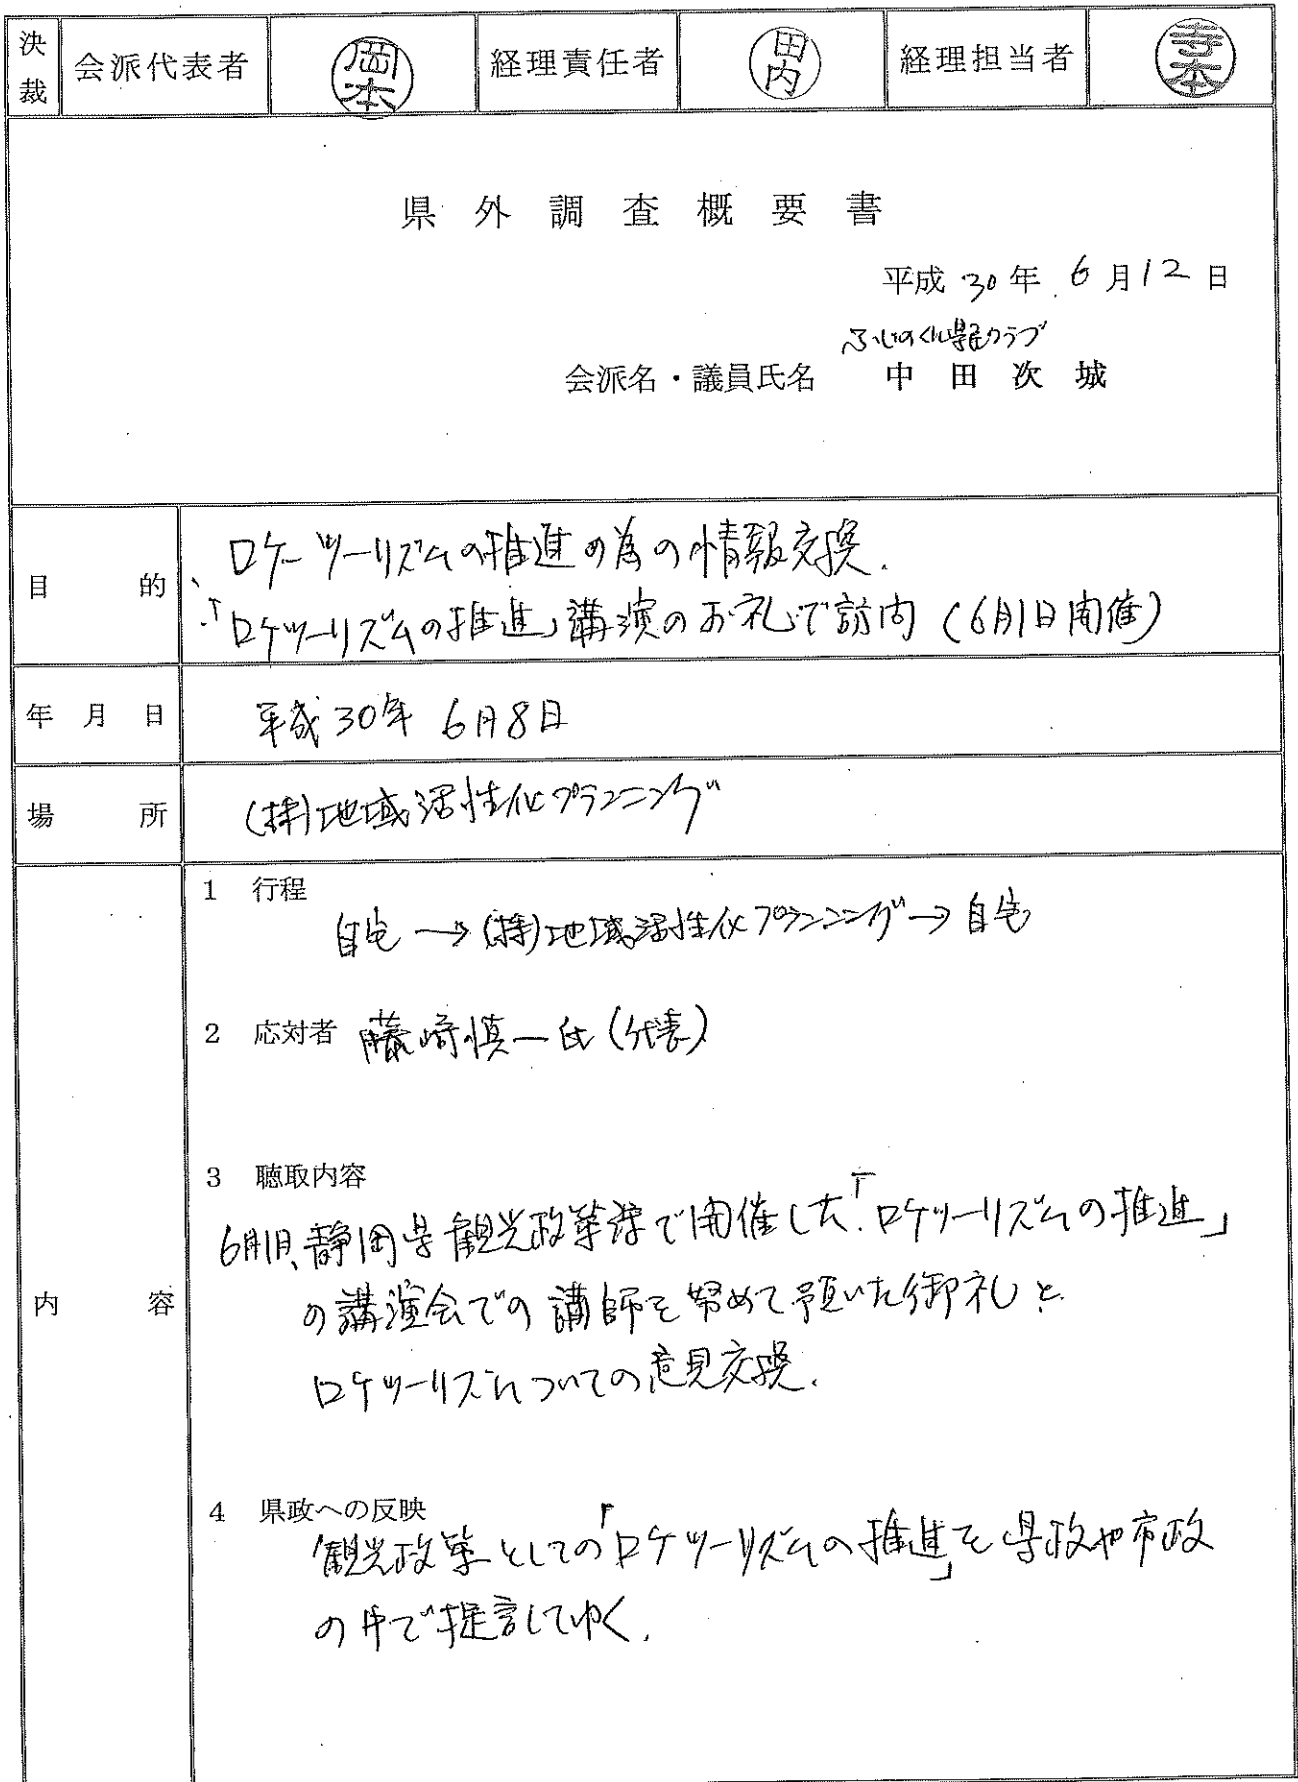 決裁 会派代表者 岡本 経理責任者 田内 経理担当者
県外調査概要書
平成 30年 6月12日
ふじのくに県民クラブ
会派名・議員氏名 中田次城
目的
ロケーツーリズムの推進の為の情報交換.
「ロケツーリズムの推進」講演のお礼で訪問 (6月1日開催)
年月日 平成30年 6月8日
場所 (株)地域活性化プランニング
内容
1 行程
自宅 → (株)地域活性化プランニング → 自宅
2 応対者 藤崎慎一氏 (代表)
3 聴取内容
6月1日、静岡県観光政策課で開催した「ロケツーリズムの推進」
の講演会での講師を努めて頂いた御礼と
ロケツーリズムについての意見交換.
4 県政への反映
観光政策としての「ロケツーリズムの推進」を県政や市政
の中で提言してゆく.